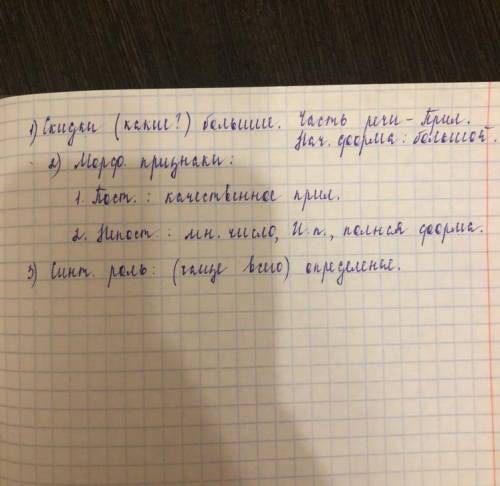 1) Скидки (какие?) большие. Часть речи - Прил.
Нач. форма: большой.
2) Морф. признаки:
1. Пост.: качественное прил.
2. Непост.: мн. число, И.п., полная форма.
3) Синт. роль: (чаще всего) определение.